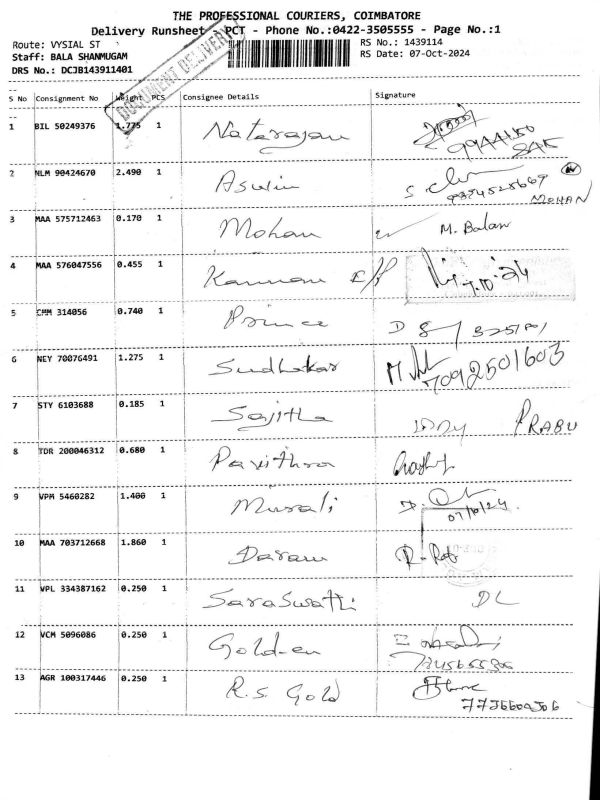 THE PROFESSIONAL COURIERS, COIMBATORE
Delivery Runsheet - PCT - Phone No.:0422-3505555 - Page No.:1
DOCUMENT DELIVERY
Route: VYSIAL ST
RS No.: 1439114
Staff: BALA SHANMUGAM
RS Date: 07-Oct-2024
DRS No.: DCJB143911401
S No Consignment No Weight PCS Consignee Details Signature
1 BIL 50249376 1.775 1 Natarajan
2 NLM 90424670 2.490 1 Aswin MOHAN
3 MAA 575712463 0.170 1 Mohan M. Balan
4 MAA 576047556 0.455 1 Kannan E/P
5 CHM 314056 0.740 1 Prince
6 NEY 70076491 1.275 1 Sudhakar 7092501603
7 STY 6103688 0.185 1 Sajitha PRABU
8 TDR 200046312 0.680 1 Pavithra
9 VPM 5460282 1.400 1 Murali 07/10/24
10 MAA 703712668 1.860 1 Daram
11 VPL 334387162 0.250 1 Saraswathi DL
12 VCM 5096086 0.250 1 Golden
13 AGR 100317446 0.250 1 R.S. Gold